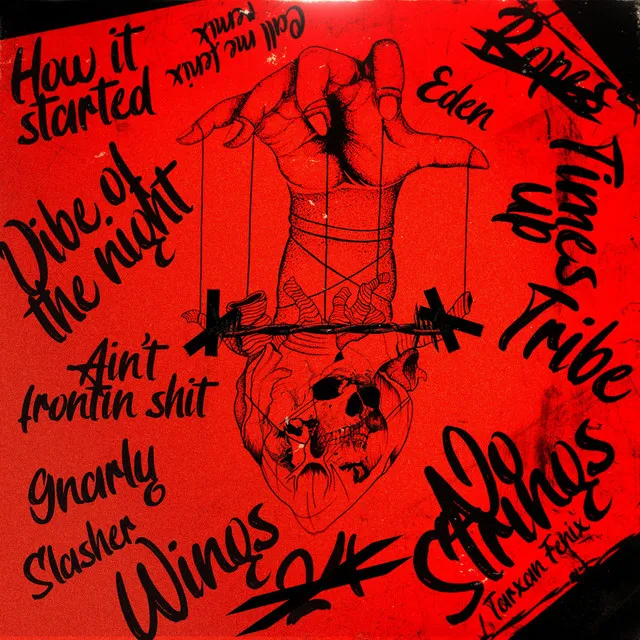 How it
started
Call me fenix
remix
Eden
Ropes
Times
up
Tribe
Vibe of
the night
Ain't
frontin shit
Gnarly
Slasher
Wings
24
No
Strings
Tarxan Fenix